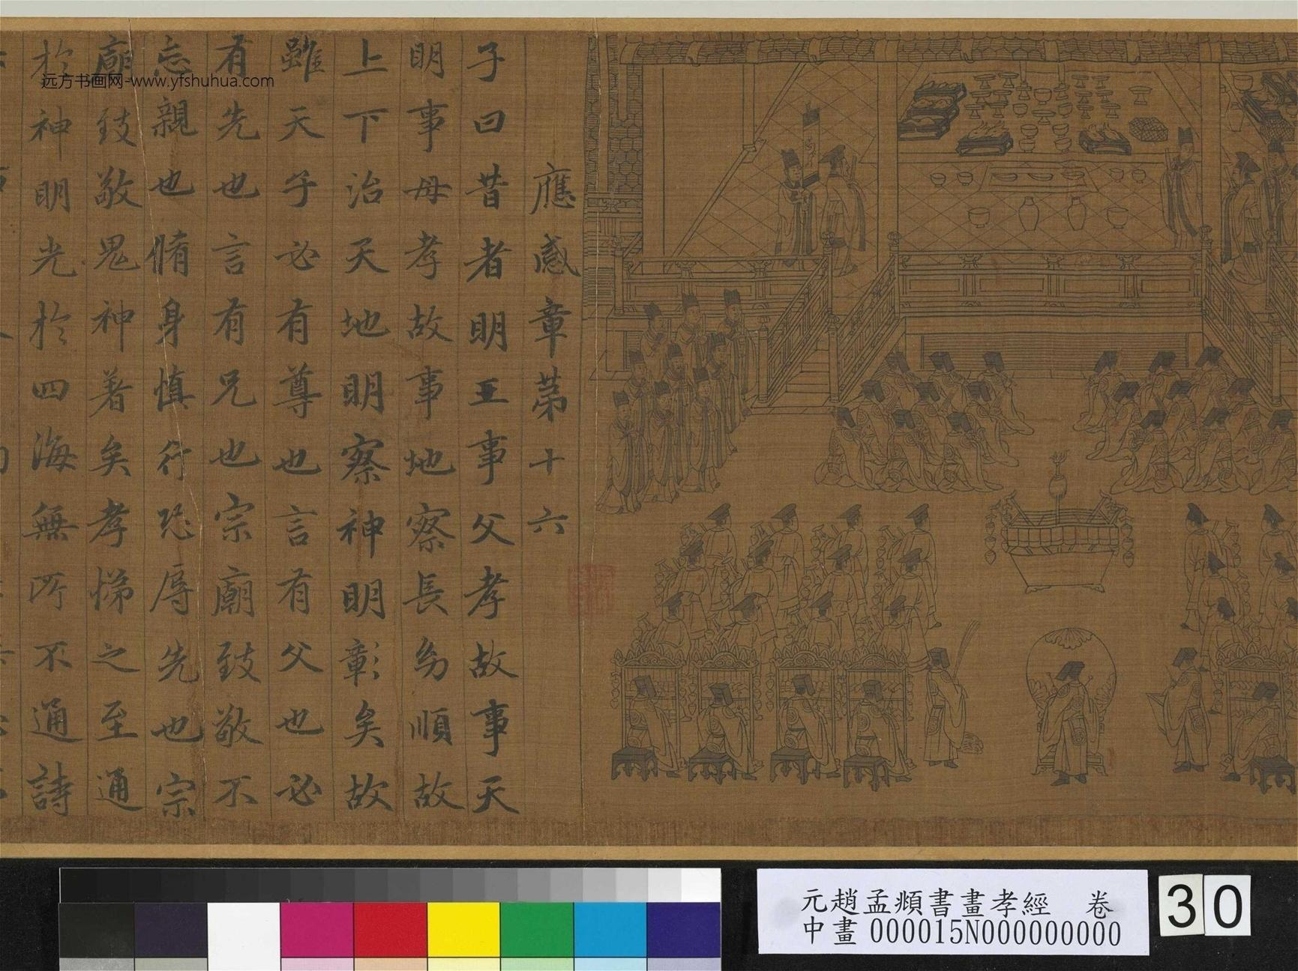 應感章第十六
子曰昔者明王事父孝故事天
明事母孝故事地察長幼順故
上下治天地明察神明彰矣故
雖天子必有尊也言有父也必
有先也言有兄也宗廟致敬不
忘親也脩身慎行恐辱先也宗
廟致敬鬼神著矣孝悌之至通
於神明光於四海無所不通詩
远方书画网-www.yfshuhua.com
元趙孟頫書畫孝經 卷
中畫 000015N000000000
30